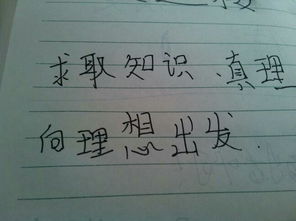 求取知识、真理
向理想出发.